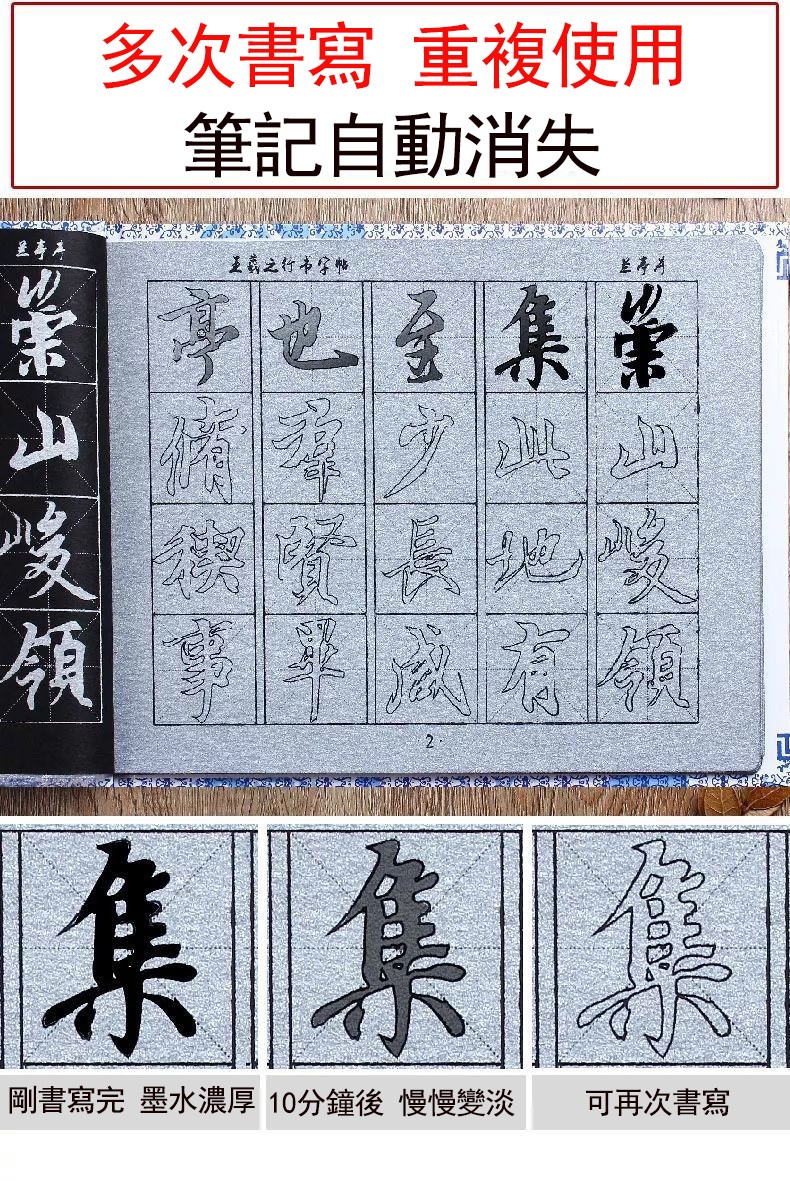 多次書寫 重複使用
筆記自動消失
兰亭序
崇山峻領
王羲之行书字帖
兰亭序
亭脩稧事
也羣賢畢
至少長咸
集此地有
崇山峻領
2.
集
集
集
剛書寫完 墨水濃厚
10分鐘後 慢慢變淡
可再次書寫